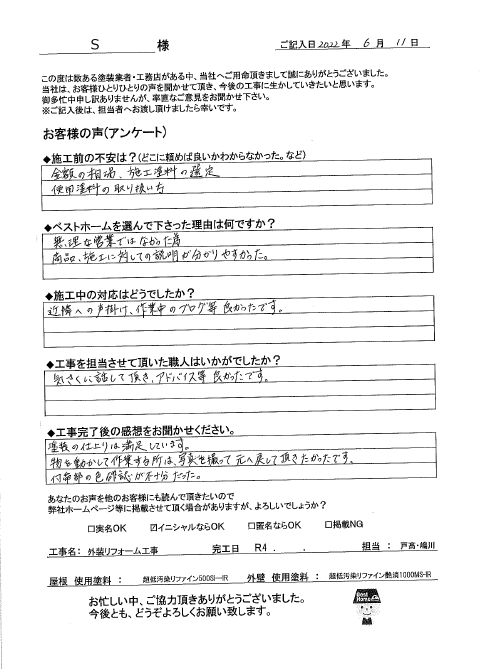 S 様
ご記入日 2022年 6月 11日
この度は数ある塗装業者・工務店がある中、当社へご用命頂きまして誠にありがとうございました。
当社は、お客様ひとりひとりの声を聞かせて頂き、今後の工事に生かしていきたいと思います。
御多忙中申し訳ありませんが、率直なご意見をお聞かせ下さい。
※ご記入後は、担当者へお渡し頂けましたら幸いです。
お客様の声(アンケート)
◆施工前の不安は?(どこに頼めば良いかわからなかった。など)
金額の相場、施工塗料の選定
使用塗料の取り扱い方
◆ベストホームを選んで下さった理由は何ですか?
無理な営業ではなかった為
商品、施工に対しての説明が分かりやすかった。
◆施工中の対応はどうでしたか?
近隣への声掛け、作業中のブログ等 良かったです。
◆工事を担当させて頂いた職人はいかがでしたか?
気さくに話して頂き、アドバイス等 良かったです。
◆工事完了後の感想をお聞かせください。
塗装の仕上りは満足しています。
物を動かして作業する所は、写真を撮って元へ戻して頂きたかったです。
付帯部の色確認が不十分だった。
あなたのお声を他のお客様にも読んで頂きたいので
弊社ホームページ等に掲載させて頂く場合がありますが、よろしいでしょうか?
□実名OK ☑イニシャルならOK □匿名ならOK □掲載NG
工事名: 外装リフォーム工事 完工日 R4 . . 担当: 戸高・嶋川
屋根 使用塗料: 超低汚染リファイン500SI-IR 外壁 使用塗料: 超低汚染リファイン艶消1000MS-IR
お忙しい中、ご協力頂きありがとうございました。
今後とも、どうぞよろしくお願い致します。
Best Home